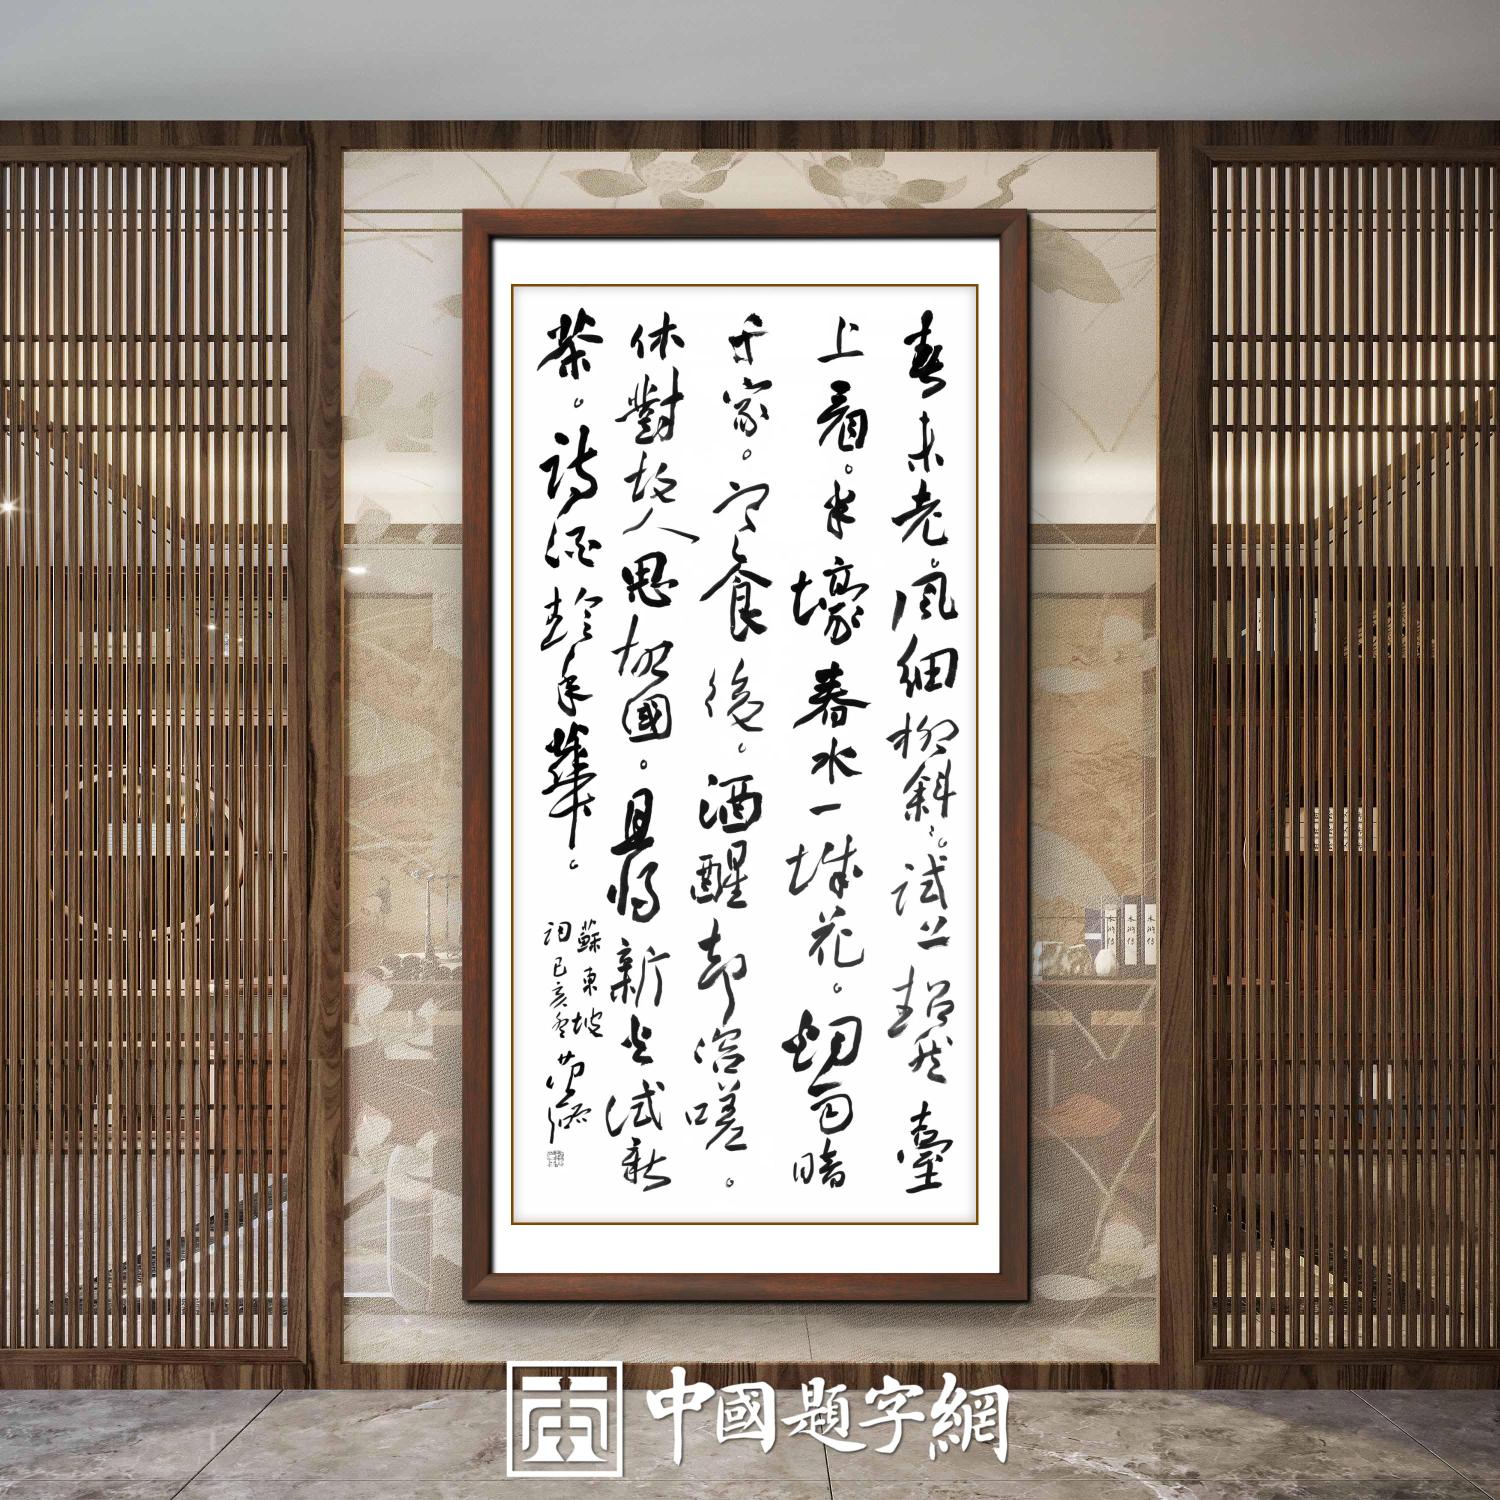 春未老。風細柳斜〻。試上超然臺
上看。半壕春水一城花。烟雨暗
千家。寒食後。酒醒却咨嗟。
休對故人思故國。且將新火試新
茶。詩酒趁年華。
蘇東坡
詞己亥冬
中國題字網